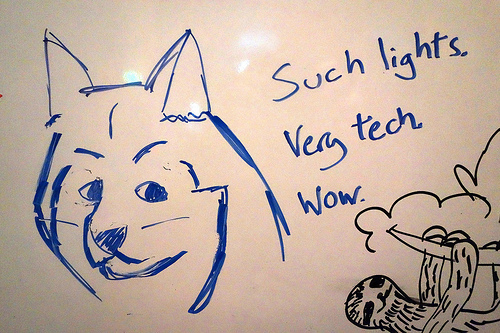 Such lights.
Very tech.
Wow.